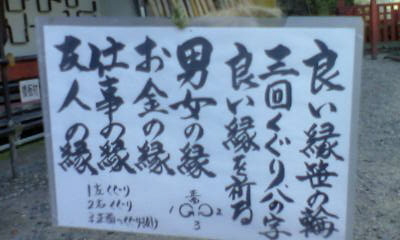 良い縁笹の輪
三回くぐり、八の字
良い縁を祈る
男女の縁
お金の縁
仕事の縁
友人の縁
1左くぐり
2右くぐり
3正面
1 2
3